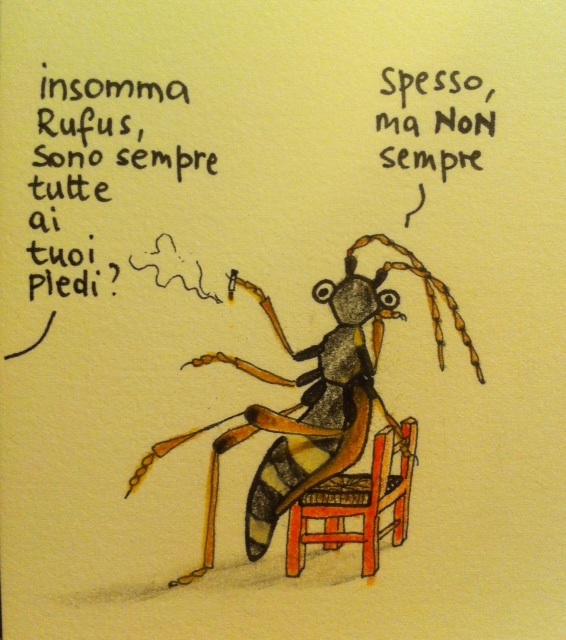 insomma
Rufus,
sono sempre
tutte
ai
tuoi
piedi?
Spesso,
ma NON
sempre